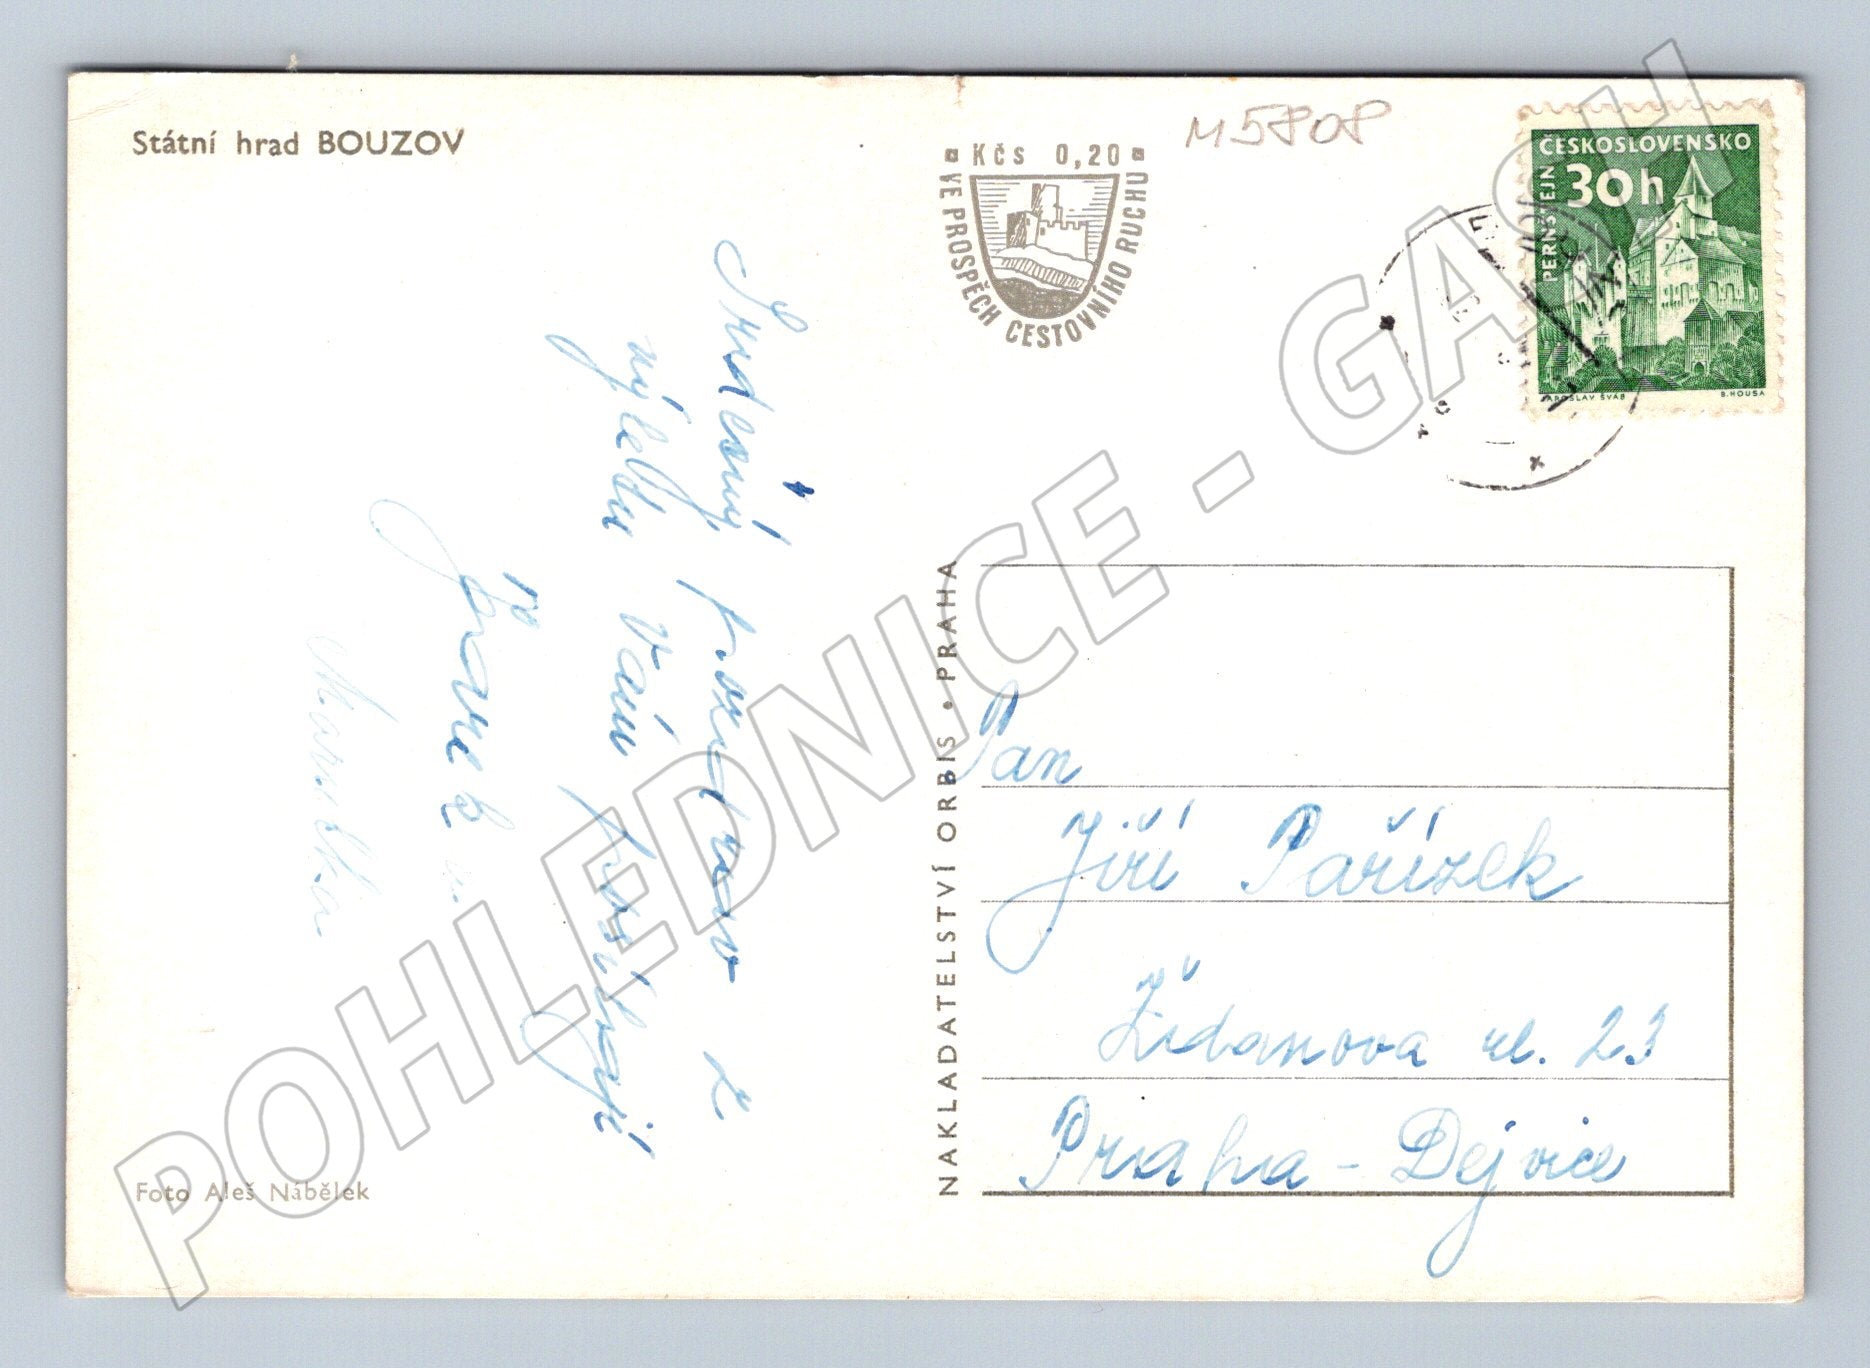 Státní hrad BOUZOV
Kčs 0,20
VE PROSPĚCH CESTOVNÍHO RUCHU
M5808
ČESKOSLOVENSKO
30h
PERNŠTEJN
JAROSLAV ŠVÁB
B. HOUSA
Srdečný pozdrav z
výletu Vám posílají
Maruška
NAKLADATELSTVÍ ORBIS • PRAHA
Pan
Jiří Pařízek
Židanova ul. 23
Praha - Dejvice
Foto Aleš Nábělek
POHLEDNICE - GASH